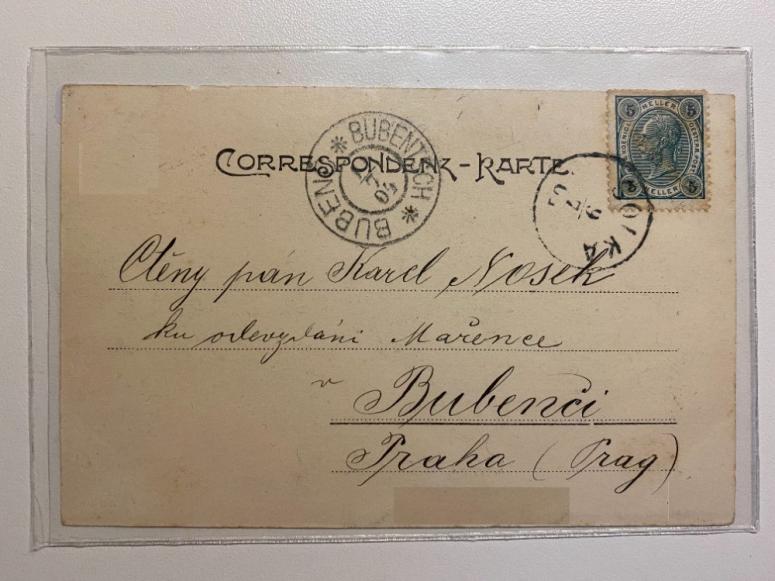 CORRESPONDENZ-KARTE.
BUBENTSCH * BUBENČ *
5 HELLER 5
5 HELLER 5
Ctěny pán Karel Nosek
ku odevzdáni Mařence
v Bubenči
Praha (Prag)